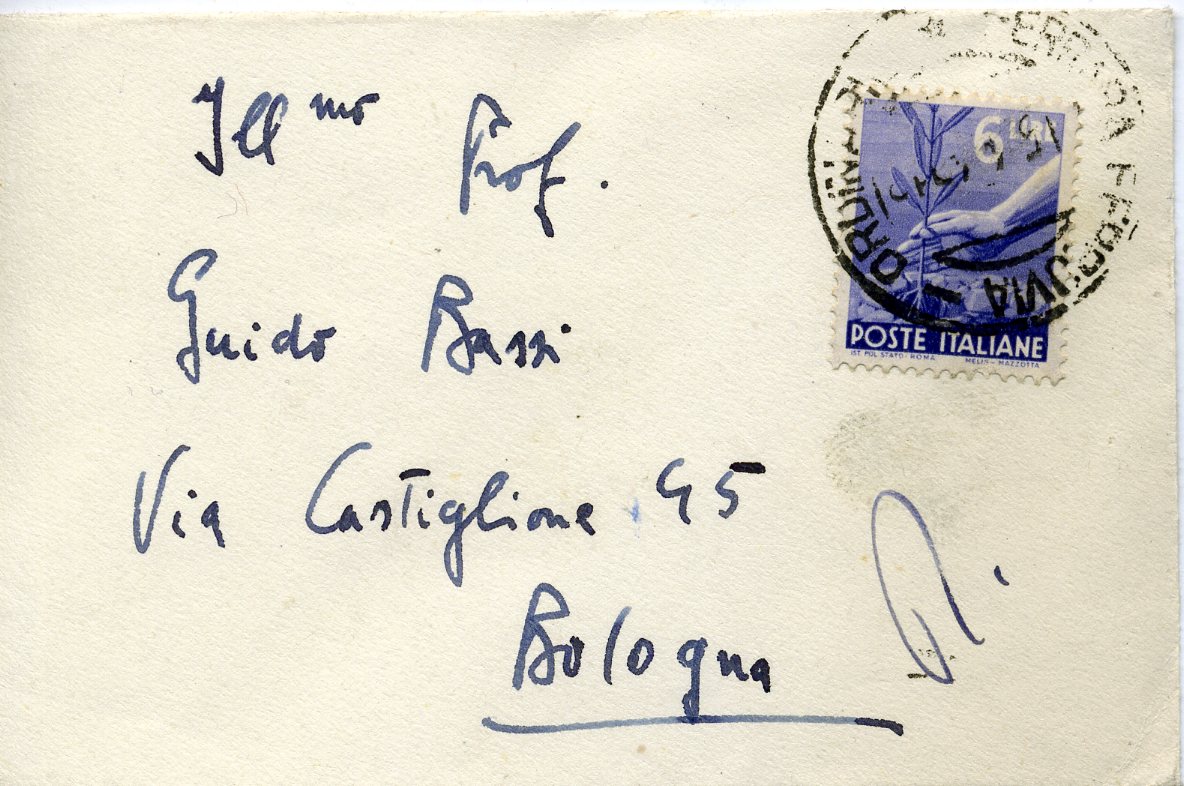 Ill mo Prof.
Guido Bassi
Via Castiglione 45
Bologna
6 LIRE
POSTE ITALIANE
IST. POL. STATO - ROMA MELIS - MAZZOTTA
FERRARA FERROVIA - ORDINARIE